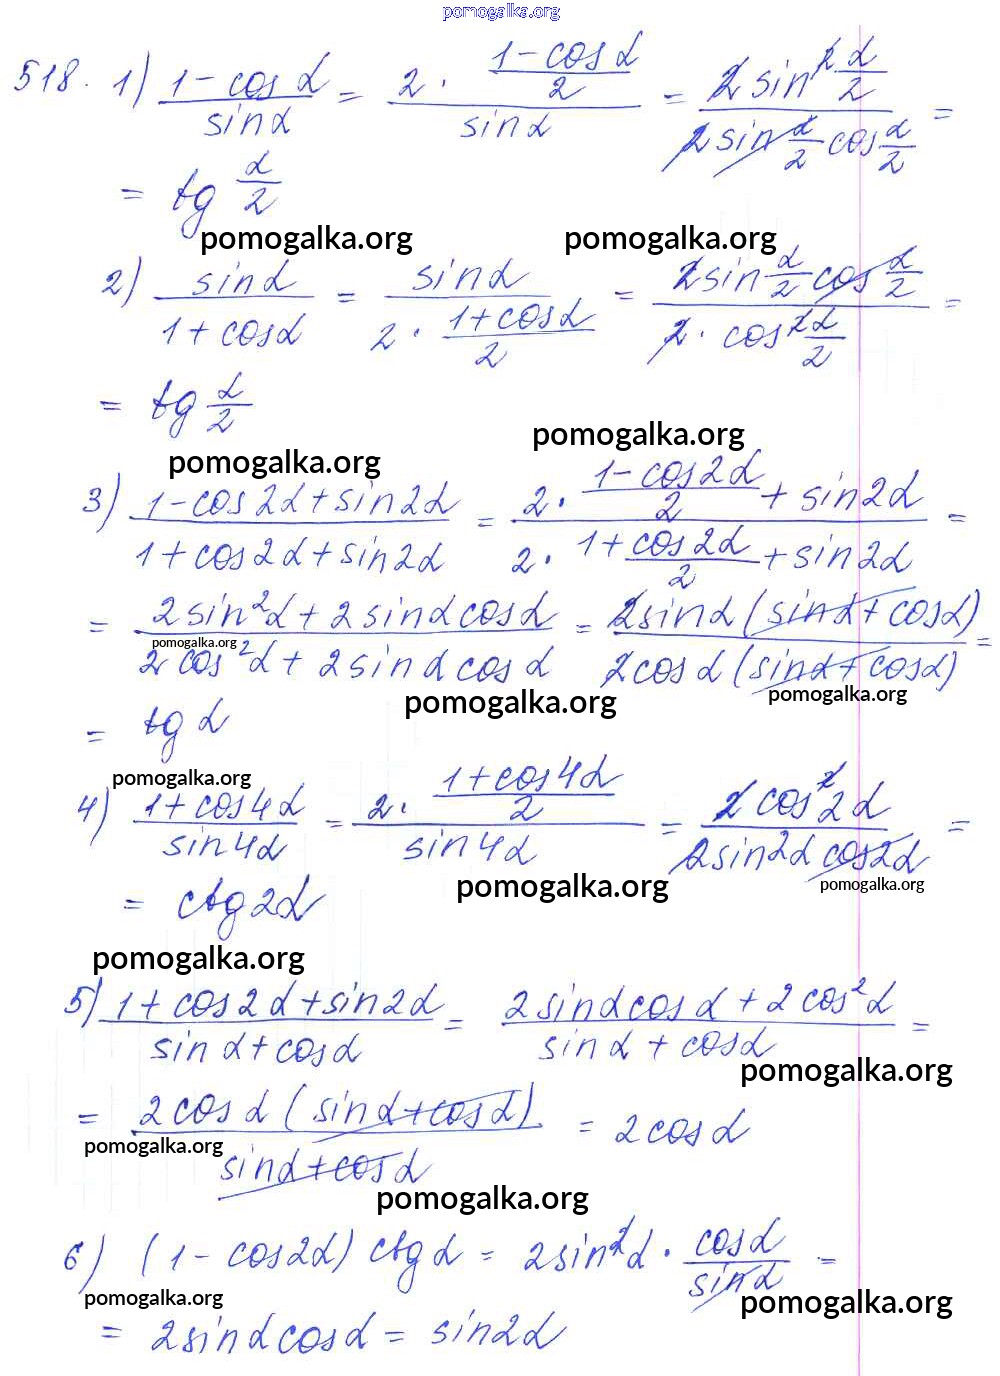 pomogalka.org
518. 1) (1-cosα)/(sinα) = (2·(1-cosα)/2)/(sinα) = (2sin²(α/2))/(2sin(α/2)cos(α/2)) =
= tg(α/2)
pomogalka.org pomogalka.org
2) (sinα)/(1+cosα) = (sinα)/(2·(1+cosα)/2) = (2sin(α/2)cos(α/2))/(2·cos²(α/2)) =
= tg(α/2)
pomogalka.org
pomogalka.org
3) (1-cos2α+sin2α)/(1+cos2α+sin2α) = (2·(1-cos2α)/2+sin2α)/(2·1+(cos2α)/2+sin2α) =
= (2sin²α+2sinαcosα)/(2cos²α+2sinαcosα) = (2sinα(sinα+cosα))/(2cosα(sinα+cosα)) =
pomogalka.org
pomogalka.org pomogalka.org
= tgα
pomogalka.org
4) (1+cos4α)/(sin4α) = (2·(1+cos4α)/2)/(sin4α) = (2cos²2α)/(2sin2αcos2α) =
pomogalka.org pomogalka.org
= ctg2α
pomogalka.org
5) (1+cos2α+sin2α)/(sinα+cosα) = (2sinαcosα+2cos²α)/(sinα+cosα) =
pomogalka.org
= (2cosα(sinα+cosα))/(sinα+cosα) = 2cosα
pomogalka.org
pomogalka.org
6) (1-cos2α)ctgα = 2sin²α·(cosα)/(sinα) =
pomogalka.org pomogalka.org
= 2sinαcosα = sin2α